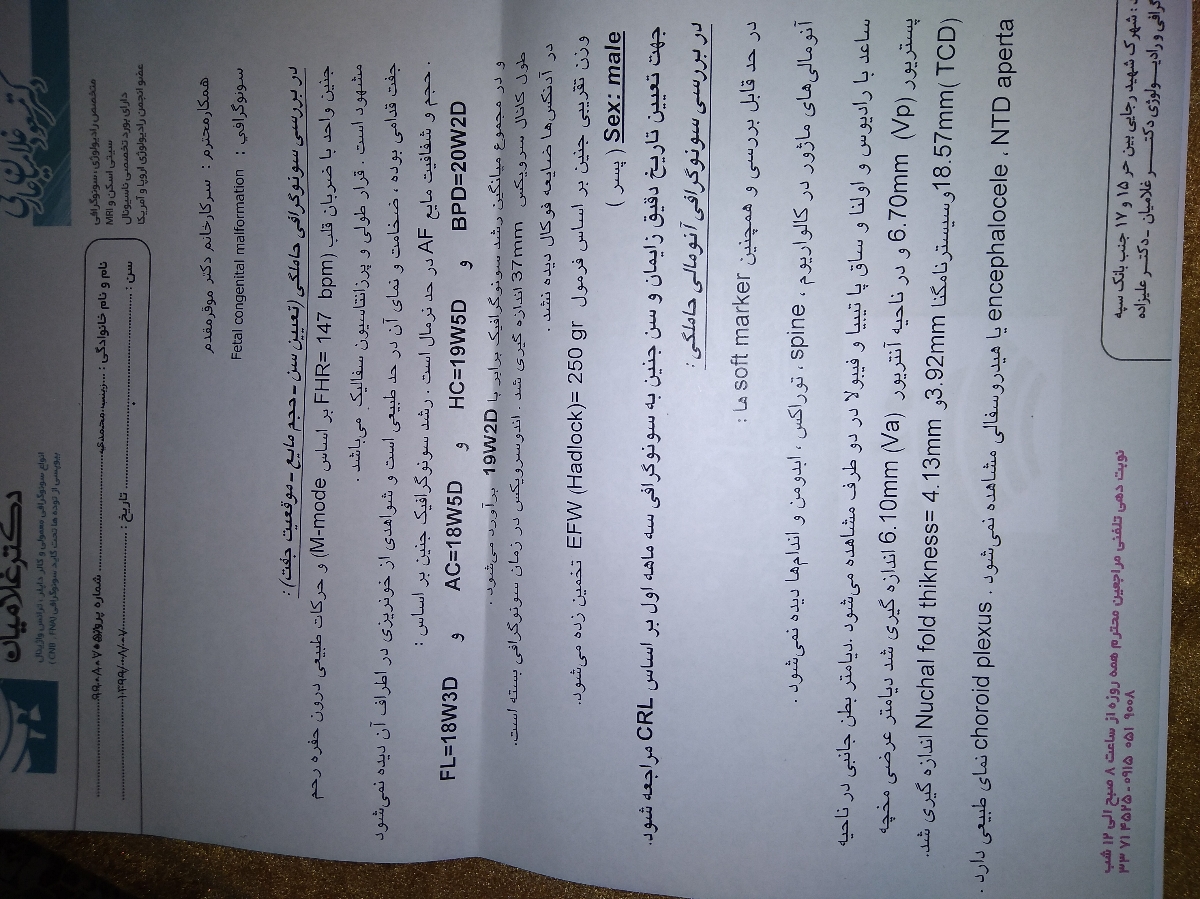 دکتر غلامیان
دکتر مسعود غلامیان فارقی
متخصص رادیولوژی، سونوگرافی
سیتی اسکن و MRI
دارای بورد تخصصی ناسیونال
عضو انجمن رادیولوژی اروپا و آمریکا
انواع سونوگرافی معمولی و کالر داپلر، ترانس واژینال
بیوپسی از توده ها تحت گاید سونوگرافی (CNB , FNA)
نام و نام خانوادگی : زینب محمدی شماره پرونده
سن : تاریخ : ۱۳۹۹/۰۸/۰۷
همکار محترم : سرکار خانم دکتر موقر مقدم
سونوگرافی : Fetal congenital malformation
در بررسی سونوگرافی حاملگی (تعیین سن - حجم مایع - موقعیت جفت) :
جنین واحد با ضربان قلب (FHR= 147 bpm بر اساس M-mode) و حرکات طبیعی درون حفره رحم
مشهود است . قرار طولی و پرزانتاسیون سفالیک می‌باشد .
جفت قدامی بوده ، ضخامت و نمای آن در حد طبیعی است و شواهدی از خونریزی در اطراف آن دیده نمی‌شود
. حجم و شفافیت مایع AF در حد نرمال است . رشد سونوگرافیک جنین بر اساس :
BPD=20W2D و HC=19W5D و AC=18W5D و FL=18W3D
و در مجموع میانگین رشد سونوگرافیک برابر با 19W2D برآورد می‌شود .
طول کانال سرویکس 37mm اندازه گیری شد . اندوسرویکس در زمان سونوگرافی بسته است.
در آدنکس‌ها ضایعه فوکال دیده نشد .
وزن تقریبی جنین بر اساس فرمول EFW (Hadlock)= 250 gr تخمین زده می‌شود.
Sex: male ( پسر )
جهت تعیین تاریخ دقیق زایمان و سن جنین به سونوگرافی سه ماهه اول بر اساس CRL مراجعه شود.
در بررسی سونوگرافی آنومالی حاملگی :
در حد قابل بررسی و همچنین soft marker ها :
آنومالی‌های ماژور در کالواریوم ، spine ، توراکس ، ابدومن و اندام‌ها دیده نمی‌شود .
ساعد با رادیوس و اولنا و ساق پا تیبیا و فیبولا در دو طرف مشاهده می‌شود .دیامتر بطن جانبی در ناحیه
پستریور (Vp) 6.70mm و در ناحیه آنتریور (Va) 6.10mm اندازه گیری شد دیامتر عرضی مخچه
(TCD )18.57mm و سیسترنامگنا 3.92mm و Nuchal fold thikness= 4.13mm اندازه گیری شد.
encephalocele ، NTD aperta یا هیدروسفالی مشاهده نمی‌شود . choroid plexus نمای طبیعی دارد .
: شهرک شهید رجایی بین حر ۱۵ و ۱۷ جنب بانک سپه
گرافی و رادیولوژی دکتر غلامیان - دکتر علیزاده
نوبت دهی تلفنی مراجعین محترم همه روزه از ساعت ۸ صبح الی ۱۲ شب
۳۳ ۷۱ ۴۵۲۵ - ۰۹۱۵ ۰۵۱ ۹۰۰۸